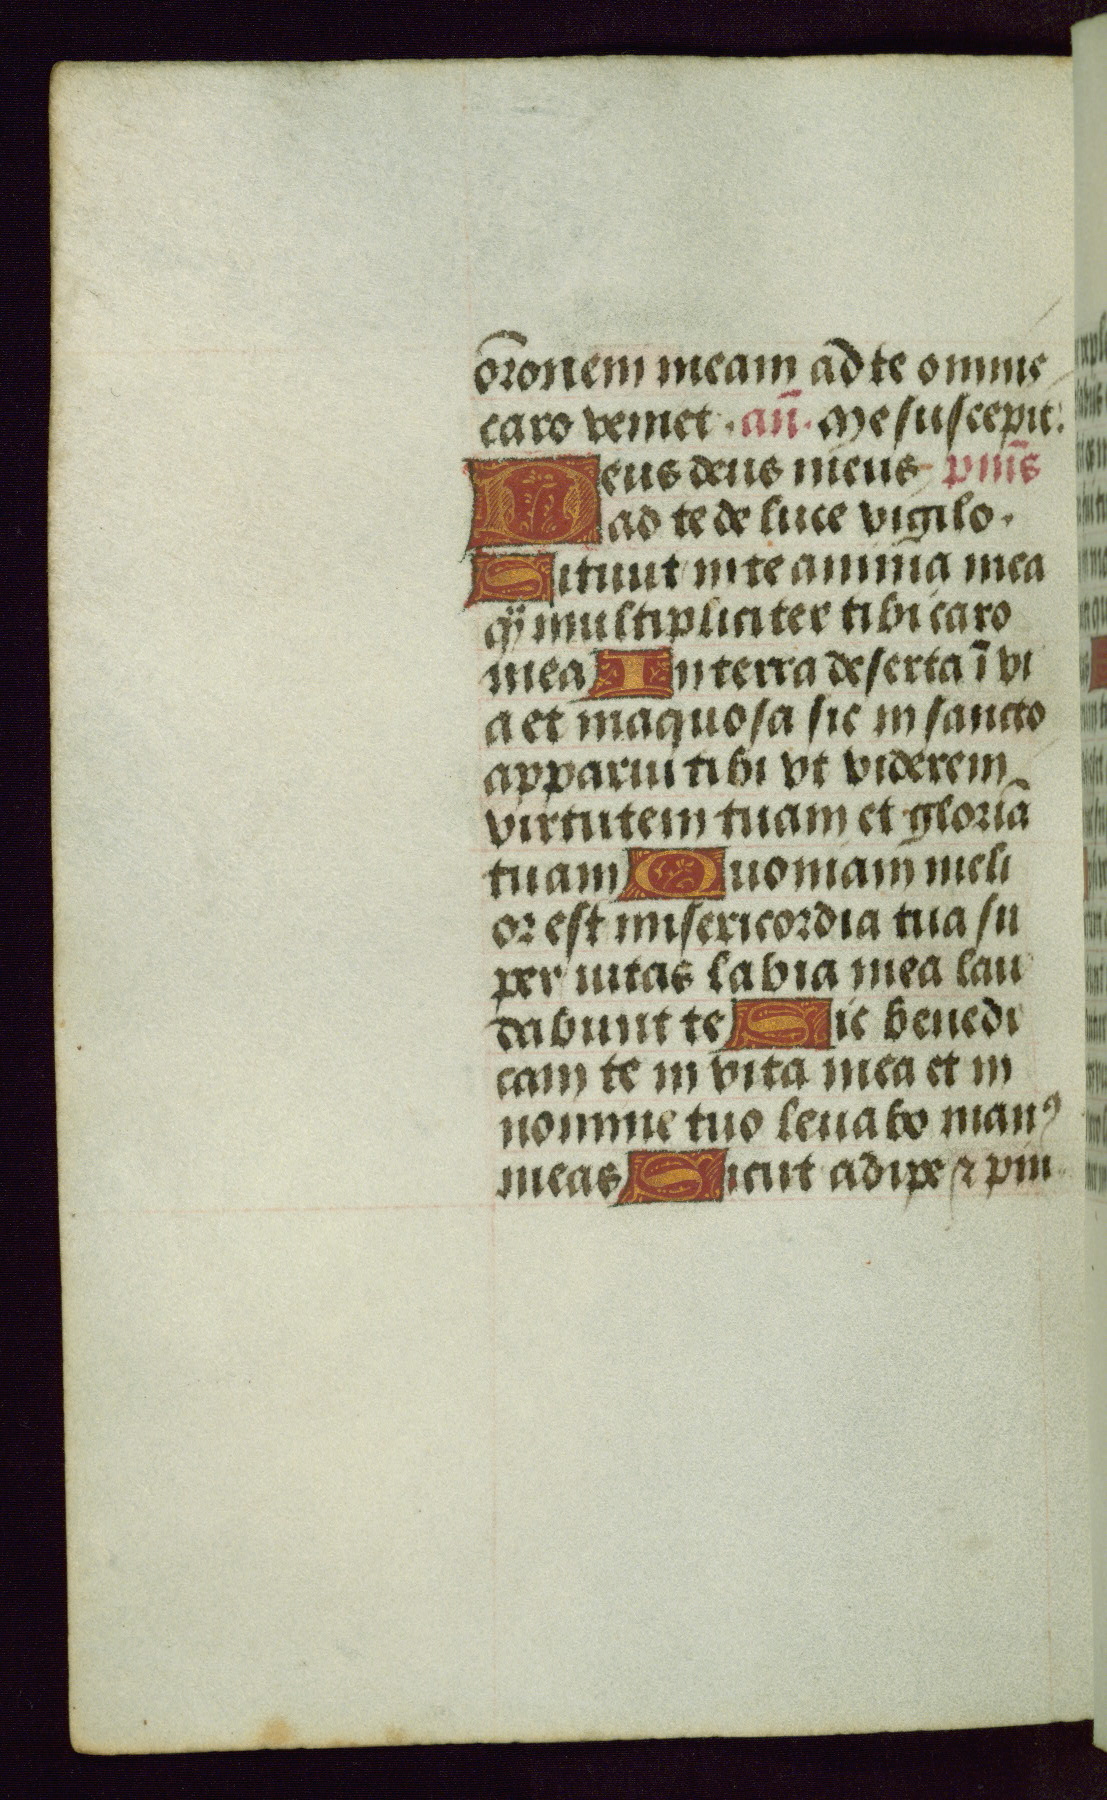 or̄onem meam ad te omnis
caro veniet · an̄ · Me suscepit:
Deus deus meus pm̄s
ad te de luce vigilo ·
Sitiuit in te anima mea
qͫ multipliciter tibi caro
mea In terra deserta ī vi
a et inaquosa sic in sancto
apparui tibi vt viderem
virtutem tuam et gloriā
tuam Quoniam meli
or est misericordia tua su
per uitas labia mea lau
dabunt te Sic benedi
cam te in vita mea et in
nomine tuo leuabo manꝰ
meas Sicut adipe ⁊ pin